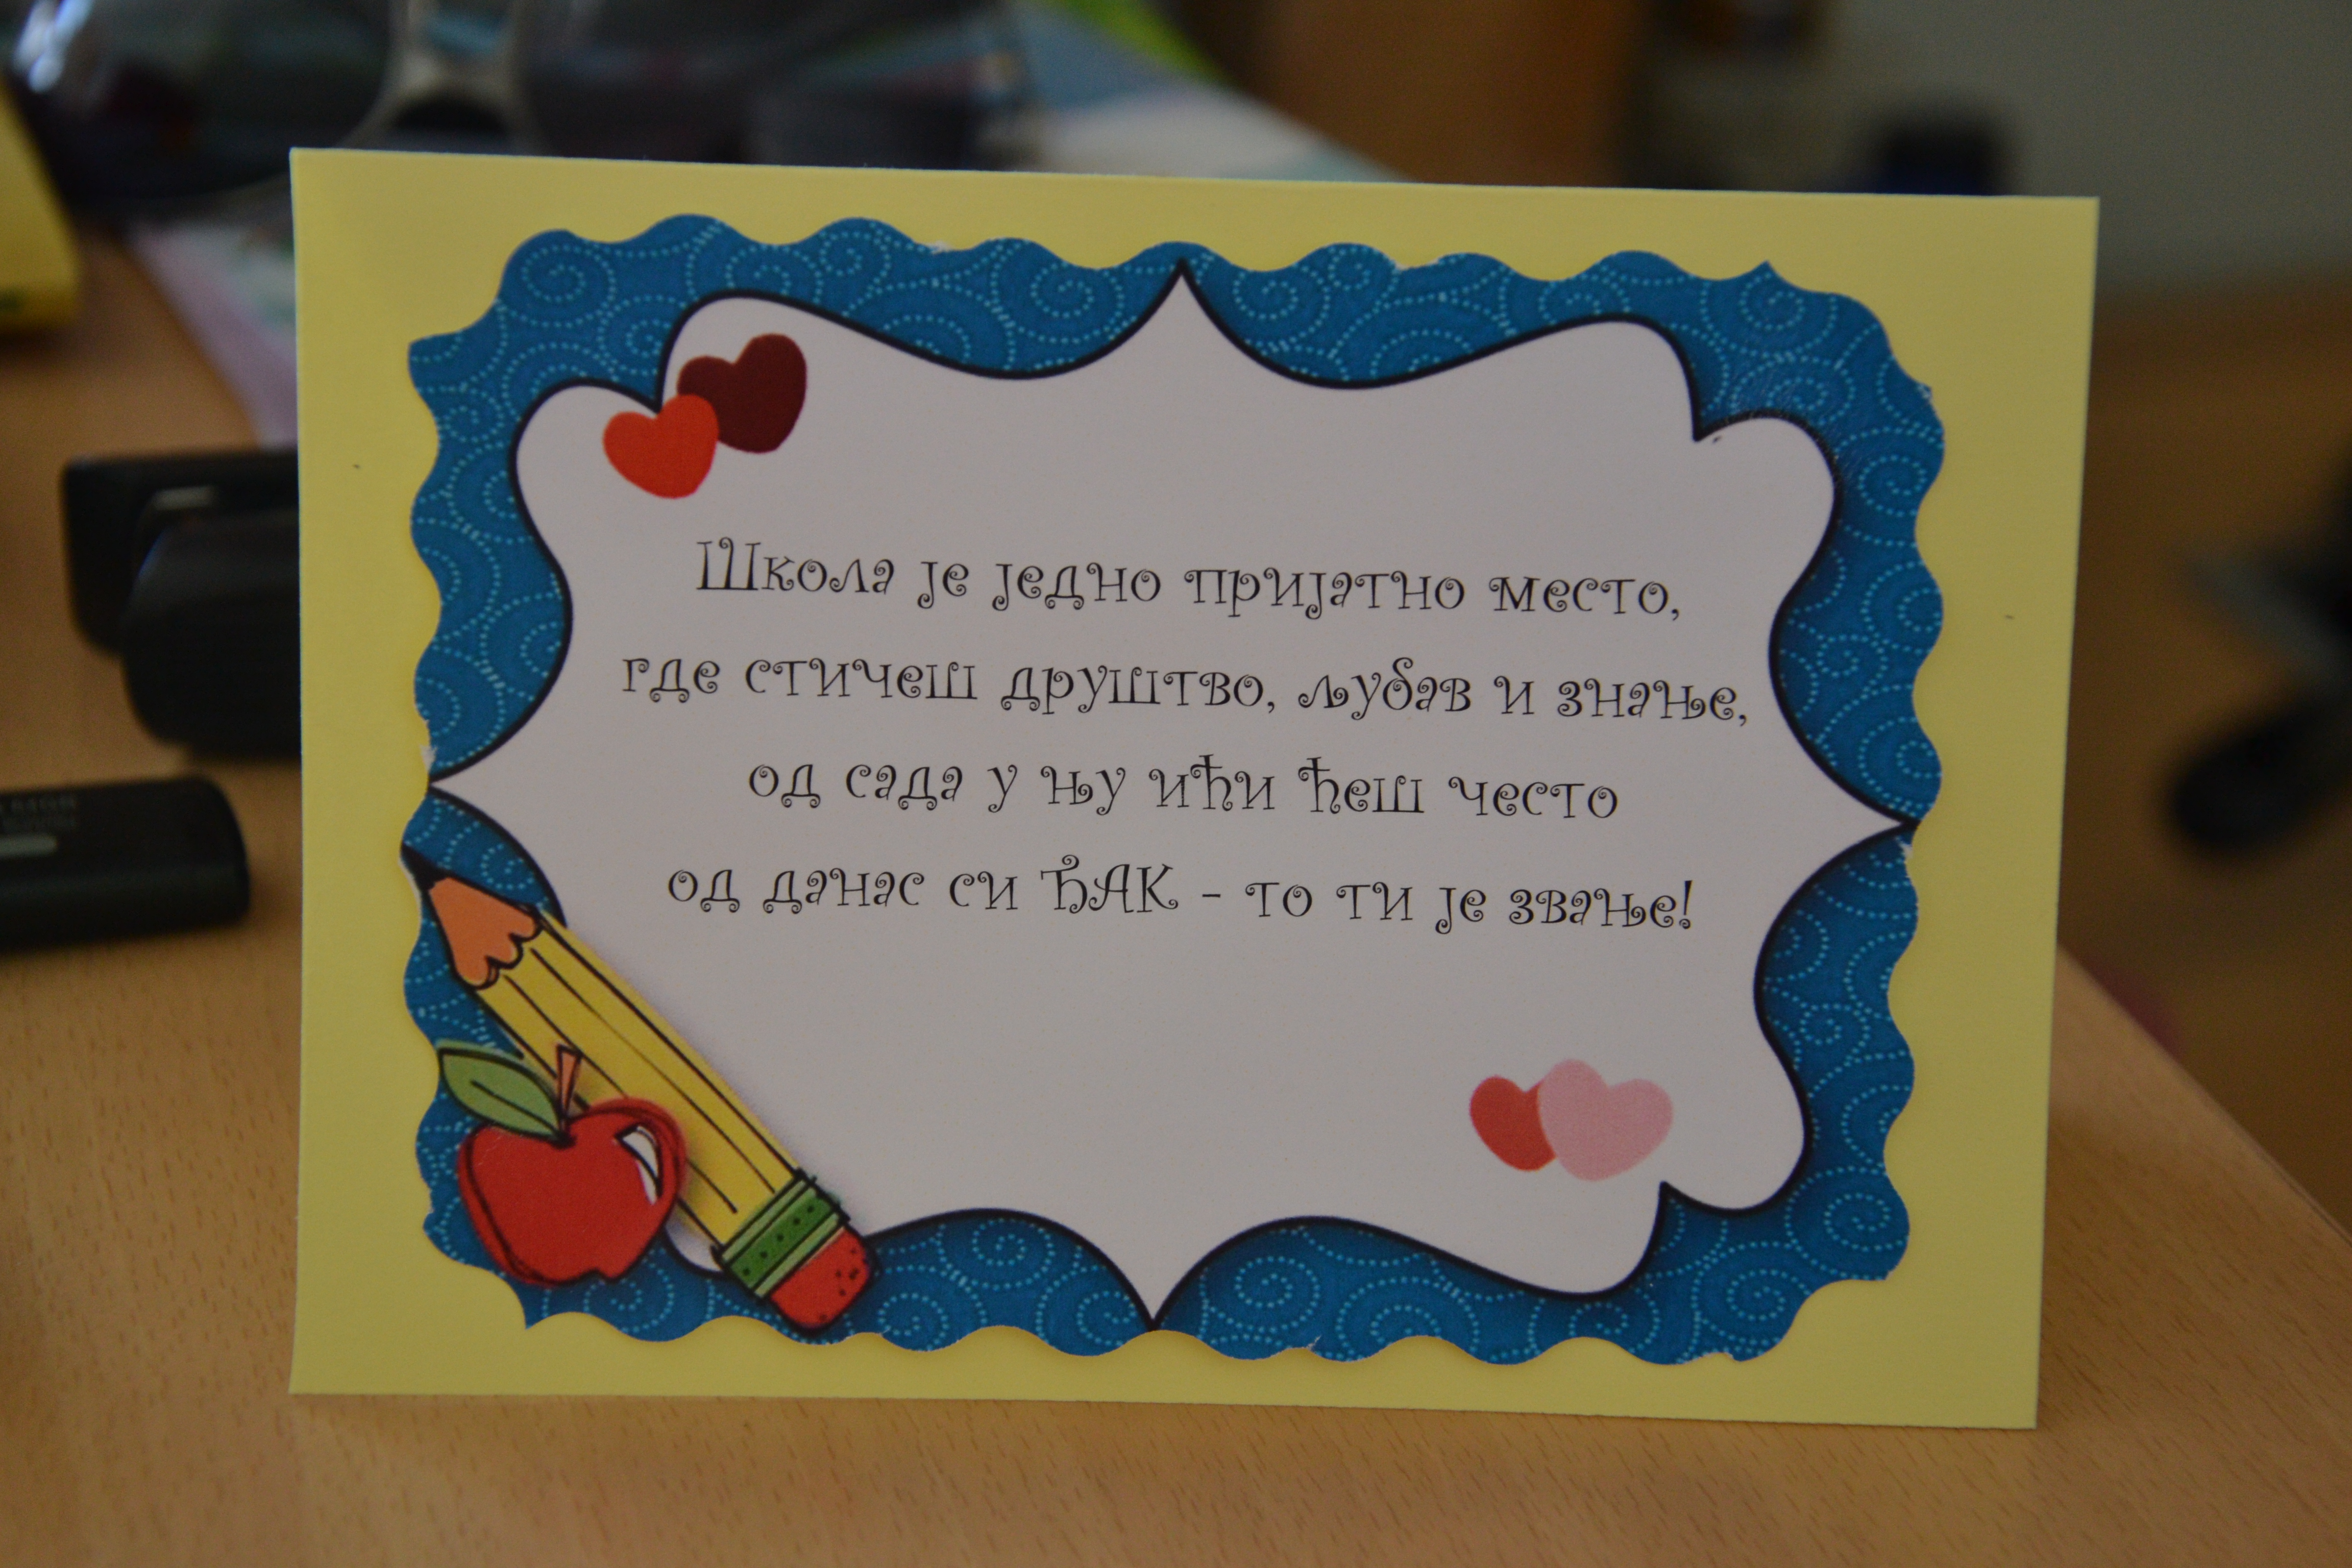 Школа је једно пријатно место,
где стичеш друштво, љубав и знање,
од сада у њу ићи ћеш често
од данас си ЂАК - то ти је звање!